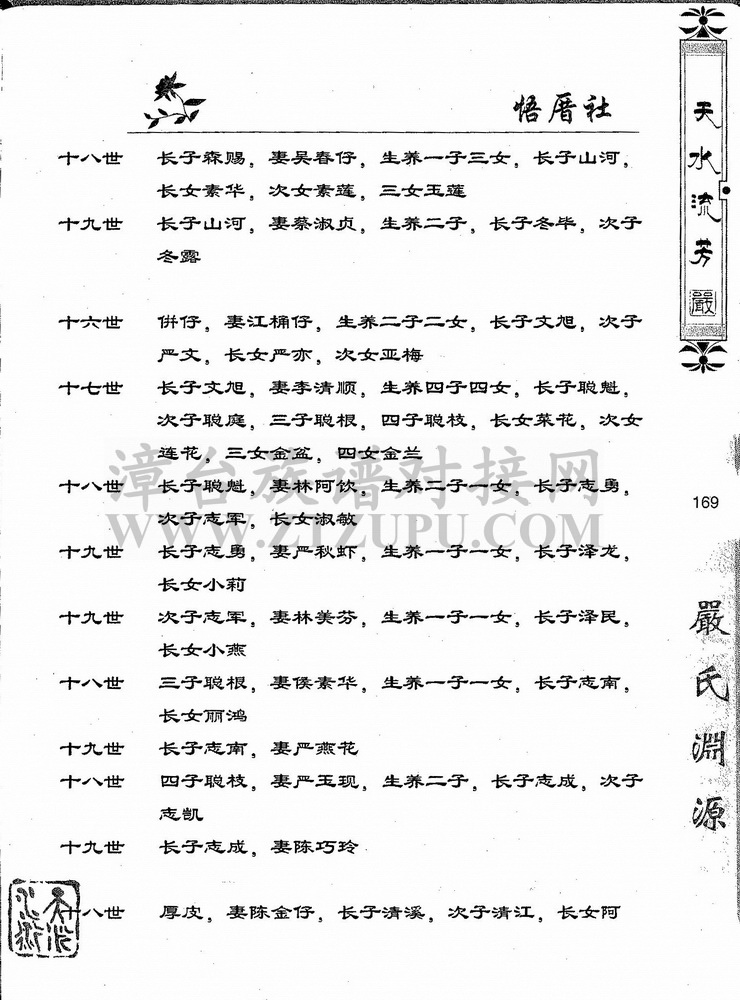 悟厝社
十八世 长子森赐，妻吴春仔，生养一子三女，长子山河，
长女素华，次女素莲，三女玉莲
十九世 长子山河，妻蔡淑贞，生养二子，长子冬毕，次子
冬露
十六世 併仔，妻江桶仔，生养二子二女，长子文旭，次子
严文，长女严亦，次女亚梅
十七世 长子文旭，妻李清顺，生养四子四女，长子聪魁，
次子聪庭，三子聪根，四子聪枝，长女菜花，次女
连花，三女金盆，四女金兰
十八世 长子聪魁，妻林阿饮，生养二子一女，长子志勇，
次子志军，长女淑敏
十九世 长子志勇，妻严秋虾，生养一子一女，长子泽龙，
长女小莉
十九世 次子志军，妻林美芬，生养一子一女，长子泽民，
长女小燕
十八世 三子聪根，妻侯素华，生养一子一女，长子志南，
长女丽鸿
十九世 长子志南，妻严燕花
十八世 四子聪枝，妻严玉现，生养二子，长子志成，次子
志凯
十九世 长子志成，妻陈巧玲
十八世 厚皮，妻陈金仔，长子清溪，次子清江，长女阿
天水流芳
嚴
169
嚴氏淵源
漳台族谱对接网
WWW.ZTZUPU.COM